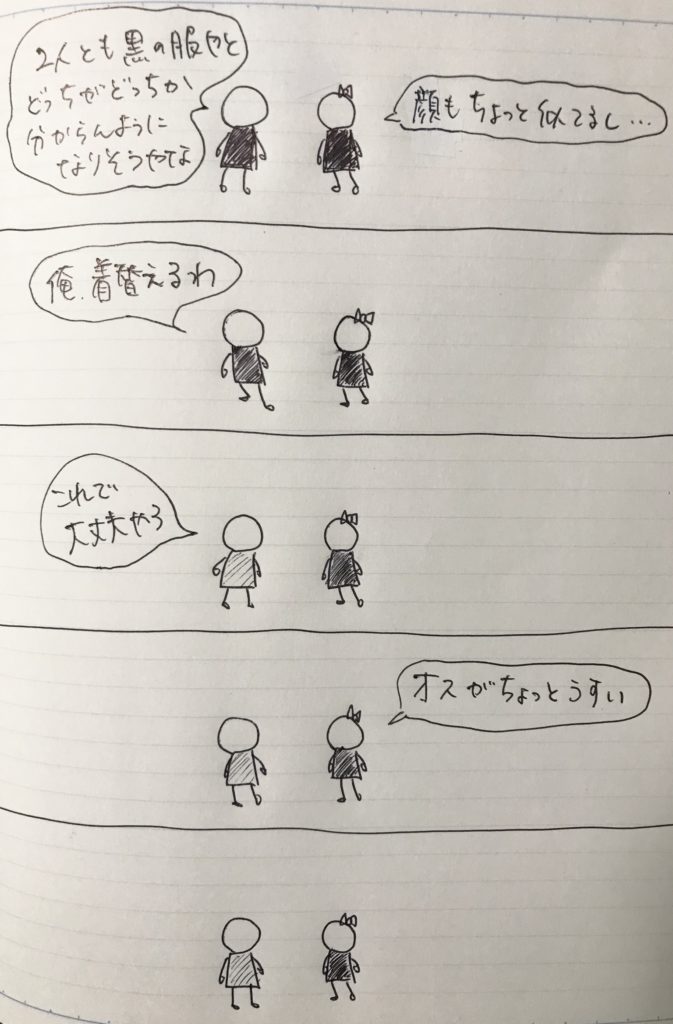 2人とも黒の服やと
どっちがどっちか
分からんように
なりそうやでな
顔もちょっと似てるし…
俺、着替えるわ
これで
大丈夫やろ
オスがちょっとうすい